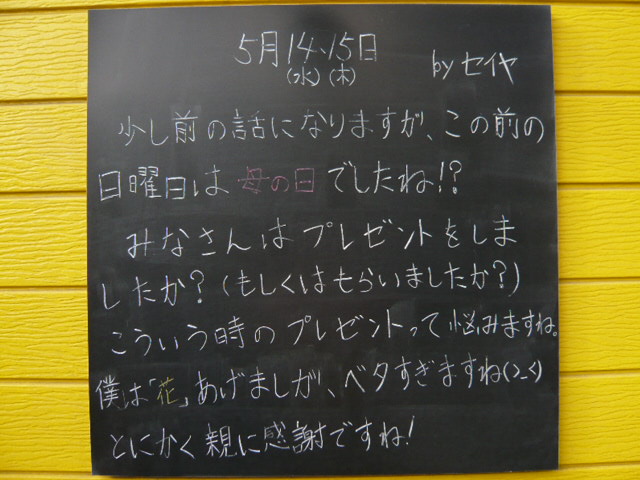 5月14、15日
(水)(木)
byセイヤ
少し前の話になりますが、この前の
日曜日は母の日でしたね!?
みなさんはプレゼントをしま
したか?(もしくはもらいましたか?)
こういう時のプレゼントって悩みますね。
僕は「花」あげましが、ベタすぎますね(>_<)
とにかく親に感謝ですね!